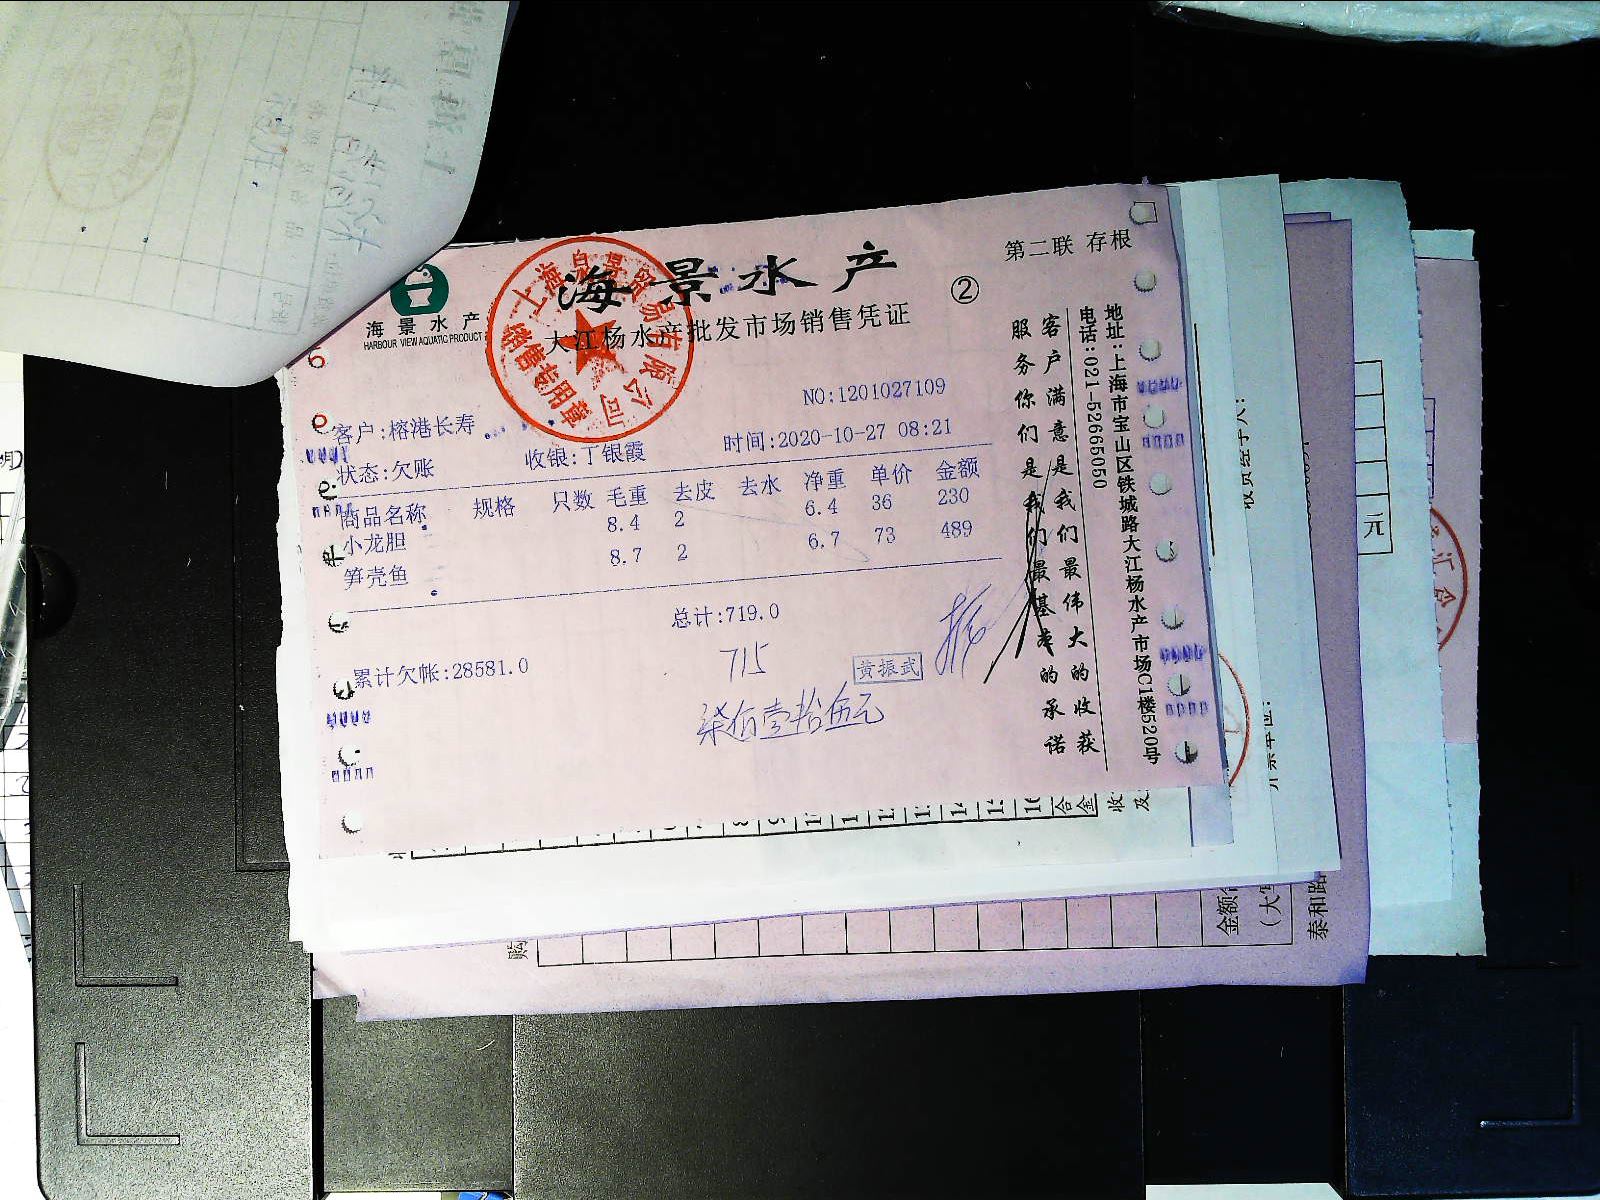 海景水产
第二联 存根
海景水产
HARBOUR VIEW AQUATIC PRODUCT
大江杨水产批发市场销售凭证
②
上海 景贸易有限公司
销售专用章
NO:1201027109
客户:榕港长寿
状态:欠账 收银:丁银霞 时间:2020-10-27 08:21
商品名称 规格 只数 毛重 去皮 去水 净重 单价 金额
小龙胆 8.4 2 6.4 36 230
笋壳鱼 8.7 2 6.7 73 489
总计:719.0
累计欠帐:28581.0
715
黄振武
柒佰壹拾伍元
客户满意是我们最伟大的收获
服务你们是我们最基本的承诺
地址:上海市宝山区铁城路大江杨水产市场C1楼520号
电话:021-52665050
收货经手人:
元
金额
泰和路